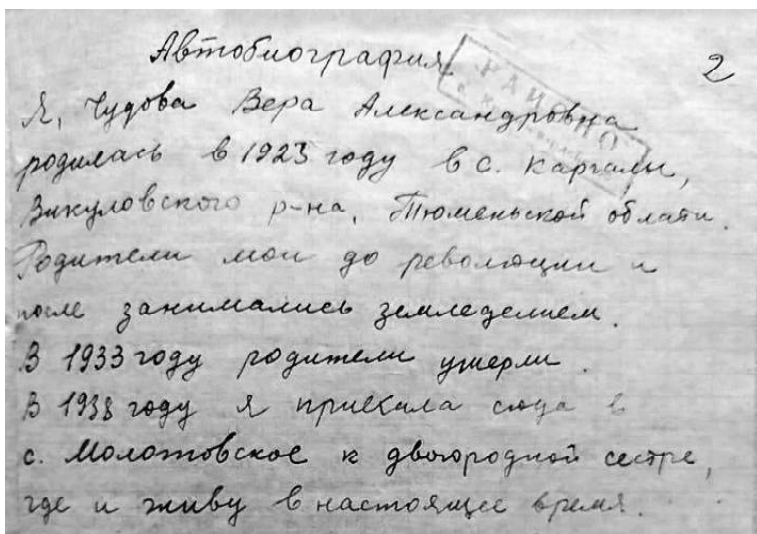 Автобиография
2
РАЙОНО
Я, Чудова Вера Александровна
родилась в 1923 году в с. Каргалы,
Викуловского р-на, Тюменьской облати.
Родители мои до революции и
после занимались земледелием.
В 1933 году родители умерли.
В 1938 году я приехала сюда в
с. Молотовское к двоюродной сестре,
где и живу в настоящее время.